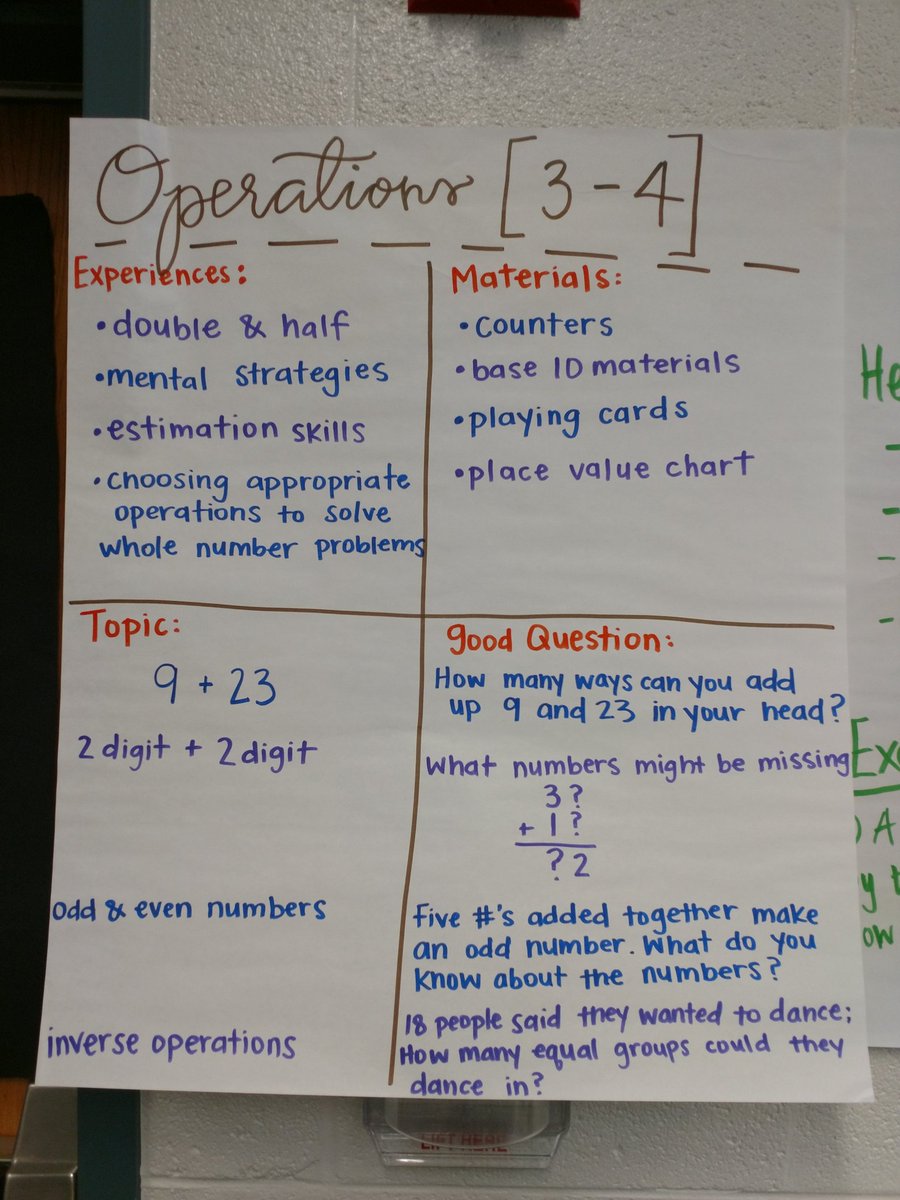 Operations [3-4]
Experiences:
•double & half
•mental strategies
•estimation skills
•choosing appropriate
operations to solve
whole number problems
Materials:
•counters
•base 10 materials
•playing cards
•place value chart
Topic:
9 + 23
2 digit + 2 digit
odd & even numbers
inverse operations
good Question:
How many ways can you add
up 9 and 23 in your head?
What numbers might be missing
3?
+ 1?
?2
Five #'s added together make
an odd number. What do you
know about the numbers?
18 people said they wanted to dance;
How many equal groups could they
dance in?
He
Ex
A
y
ow
LIFT HERE